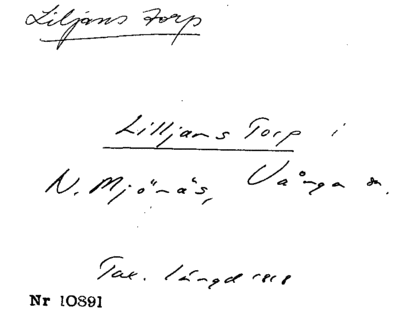 Liljans torp
Lilljans Torp i
N. Mjönäs, Vånga sn.
Tax. längd 1818
Nr 10891